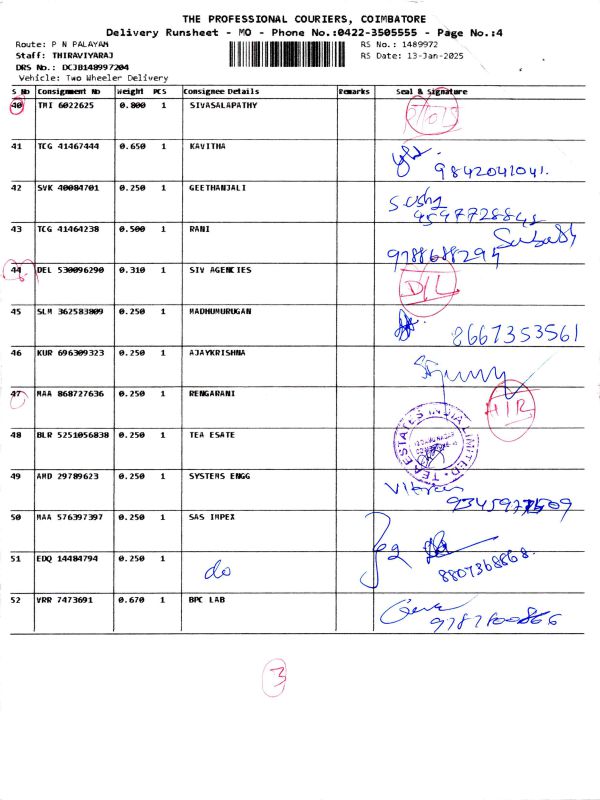 THE PROFESSIONAL COURIERS, COIMBATORE
Delivery Runsheet - MO - Phone No.:0422-3505555 - Page No.:4
Route: P N PALAYAM
RS No.: 1489972
Staff: THIRAVIYARAJ
RS Date: 13-Jan-2025
DRS No.: DCJB148997204
Vehicle: Two Wheeler Delivery
S No Consignment No Weight PCS Consignee Details Remarks Seal & Signature
40 TMI 6022625 0.800 1 SIVASALAPATHY
41 TCG 41467444 0.650 1 KAVITHA
9842041041.
42 SVK 40084701 0.250 1 GEETHANJALI
43 TCG 41464238 0.500 1 RANI
9788688294
44 DEL 530096290 0.310 1 SIV AGENCIES D/L
45 SLM 362583809 0.250 1 MADHUMURUGAN
8667353561
46 KUR 696309323 0.250 1 AJAYKRISHNA
47 MAA 868727636 0.250 1 RENGARANI
TEA ESTATES INDIA LIMITED
48 BLR 5251056838 0.250 1 TEA ESATE
49 AMD 29789623 0.250 1 SYSTEMS ENGG
50 MAA 576397397 0.250 1 SAS IMPEX
51 EDQ 14484794 0.250 1 do
8807368868.
52 VRR 7473691 0.670 1 BPC LAB
3